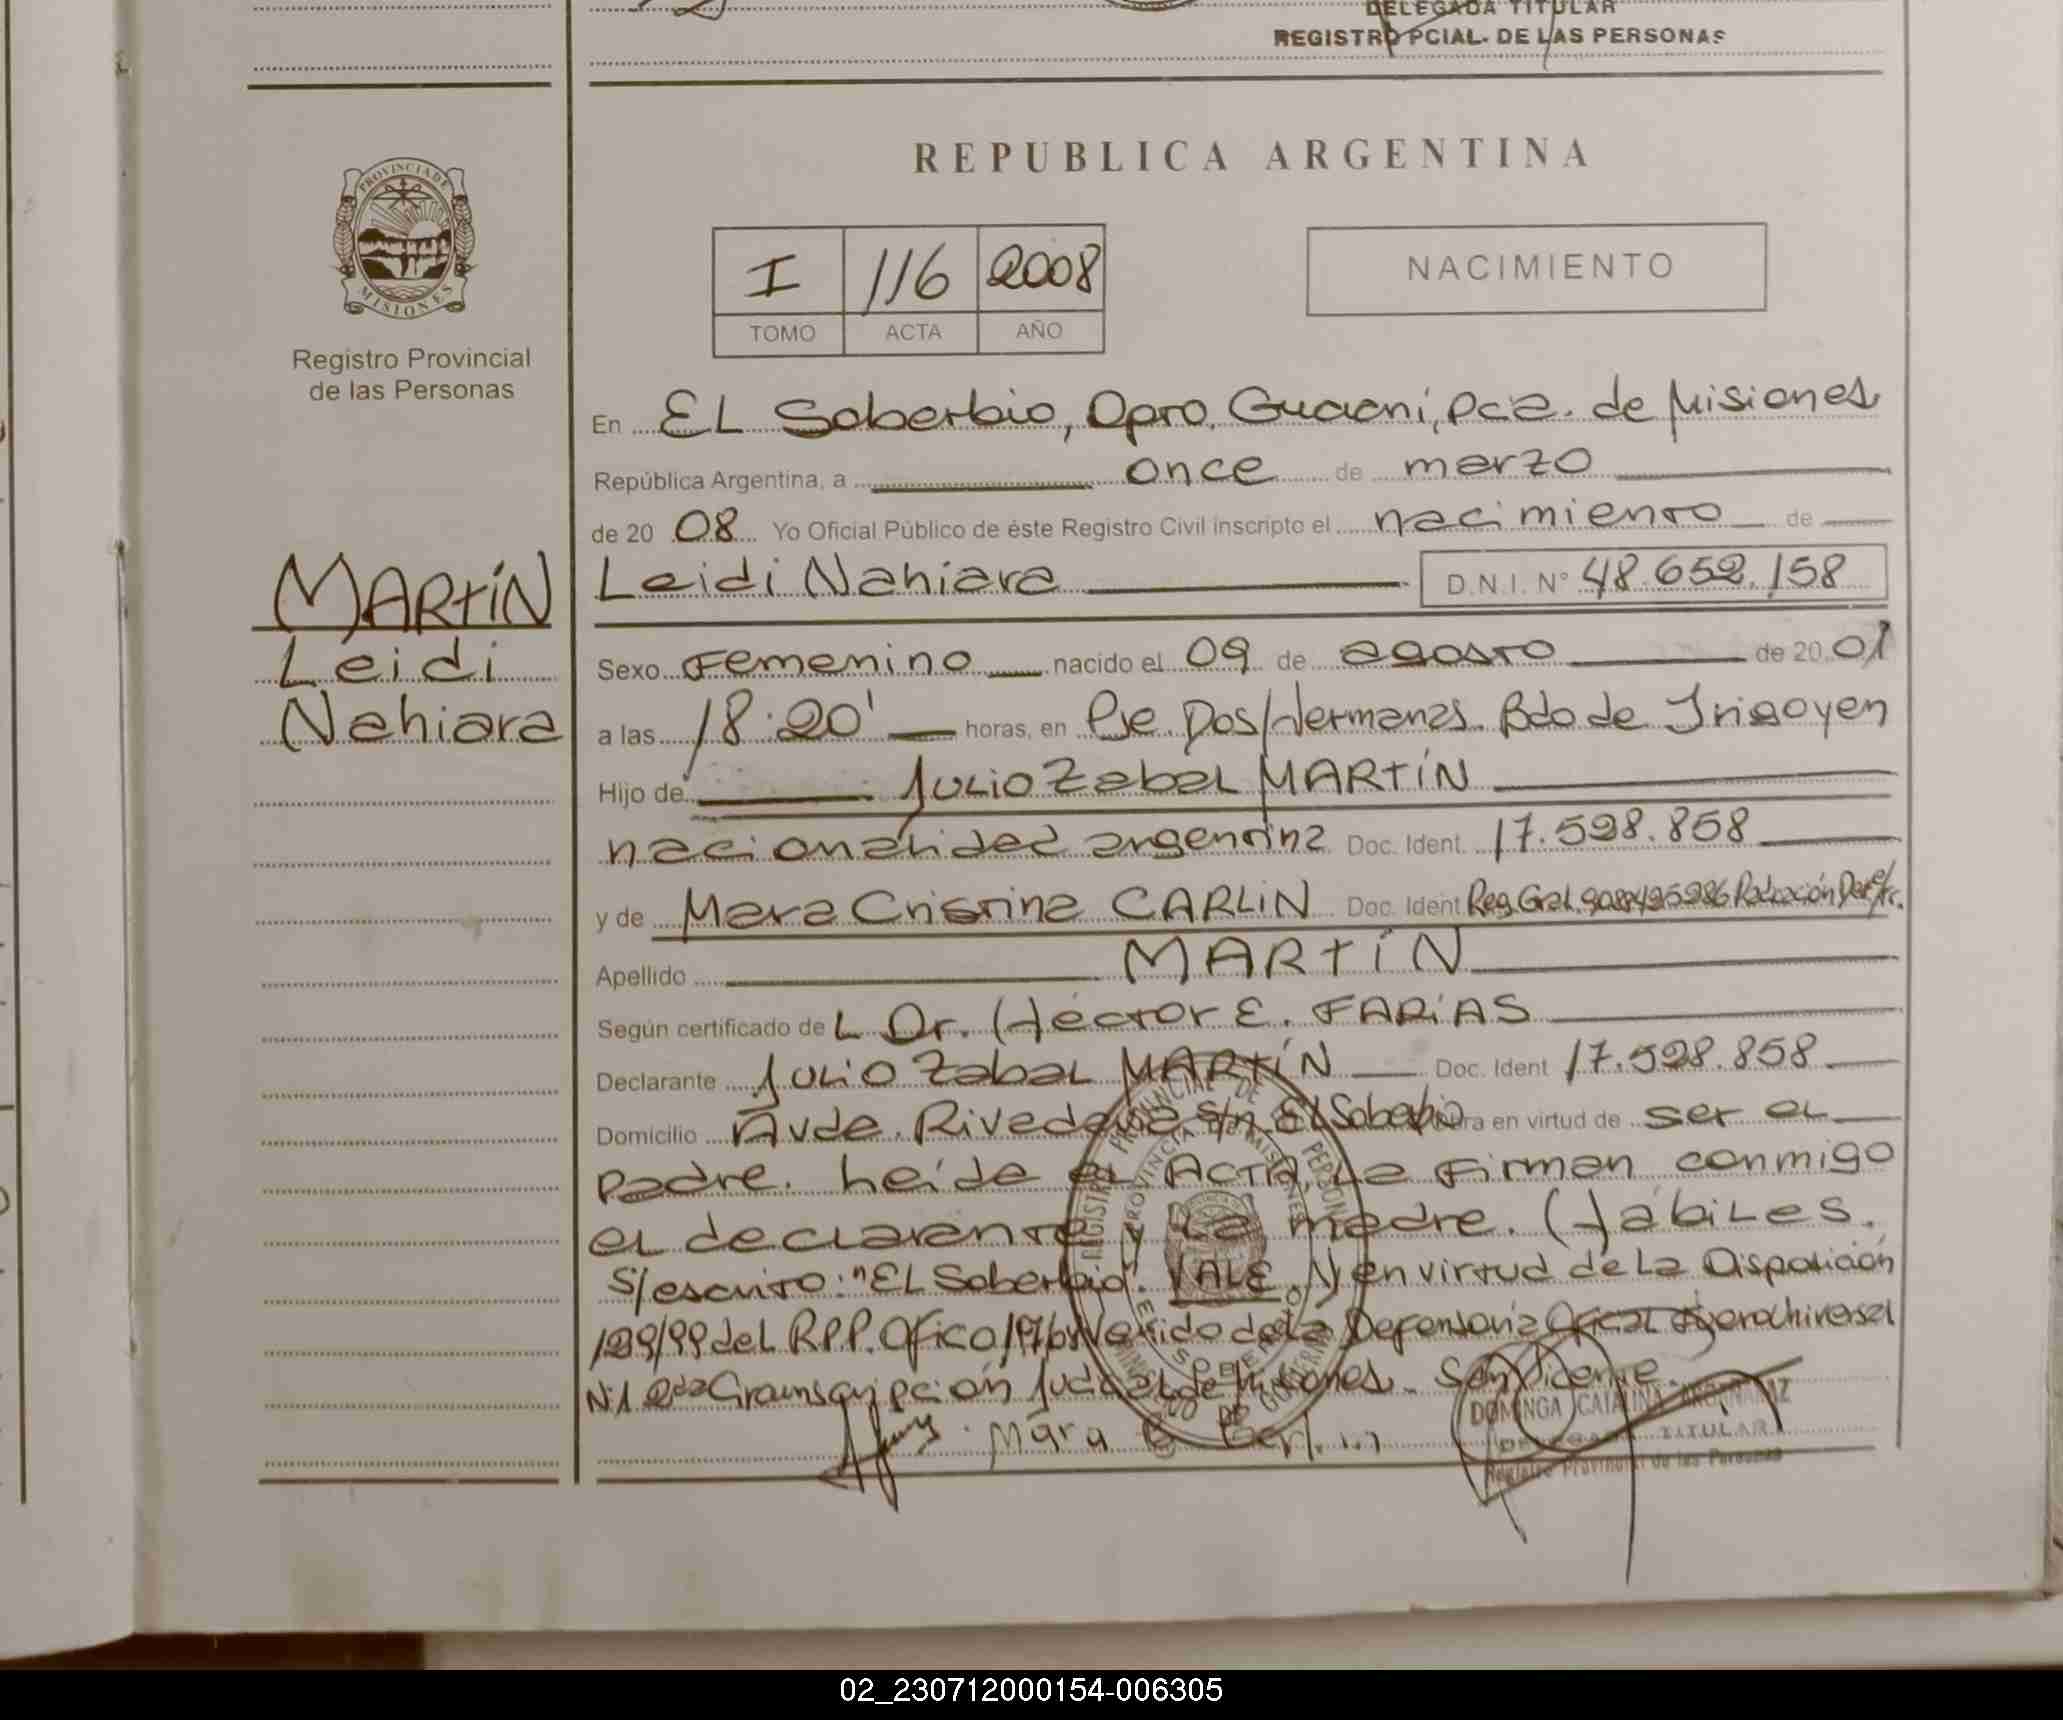 DELEGADA TITULAR
REGISTRO PCIAL. DE LAS PERSONAS
PROVINCIA DE
MISIONES
Registro Provincial
de las Personas
MARTÍN
Leidi
Nahiara
REPUBLICA ARGENTINA
I 116 2008
TOMO ACTA AÑO
NACIMIENTO
En EL Soberbio, Dpto. Guaraní, Pcia. de Misiones
República Argentina, a once de marzo
de 20 08 Yo Oficial Público de éste Registro Civil inscripto el nacimiento de
Leidi Nahiara D.N.I. N° 48.652.158
Sexo Femenino nacido el 09 de agosto de 20 01
a las 18:20' horas, en Pje. Dos Hermanas. Bdo de Irigoyen
Hijo de Julio Zabal MARTÍN
nacionalidad argentina Doc. Ident. 17.528.858
y de Mara Cristina CARLIN Doc. Ident Reg. Gral.
Apellido MARTÍN
Según certificado del Dr. Héctor E. FARIAS
Declarante Julio Zabal MARTÍN Doc. Ident 17.528.858
Domicilio Avda. Rivadavia s/n. El Soberbio en virtud de ser el
padre. Leída el ACTA, La firman conmigo
el declarante y La madre. Hábiles.
S/escrito: "EL Soberbio". VALE. en virtud de La Disposición
129/99 del R.P.P. Oficio de la Defensoría Oficial
N°1 2da Circunscripción Judicial de Misiones. San Vicente.
Mara C Carlin
DOMINGA CATALINA
DELEGADA TITULAR
Registro Provincial de las Personas
02_230712000154-006305